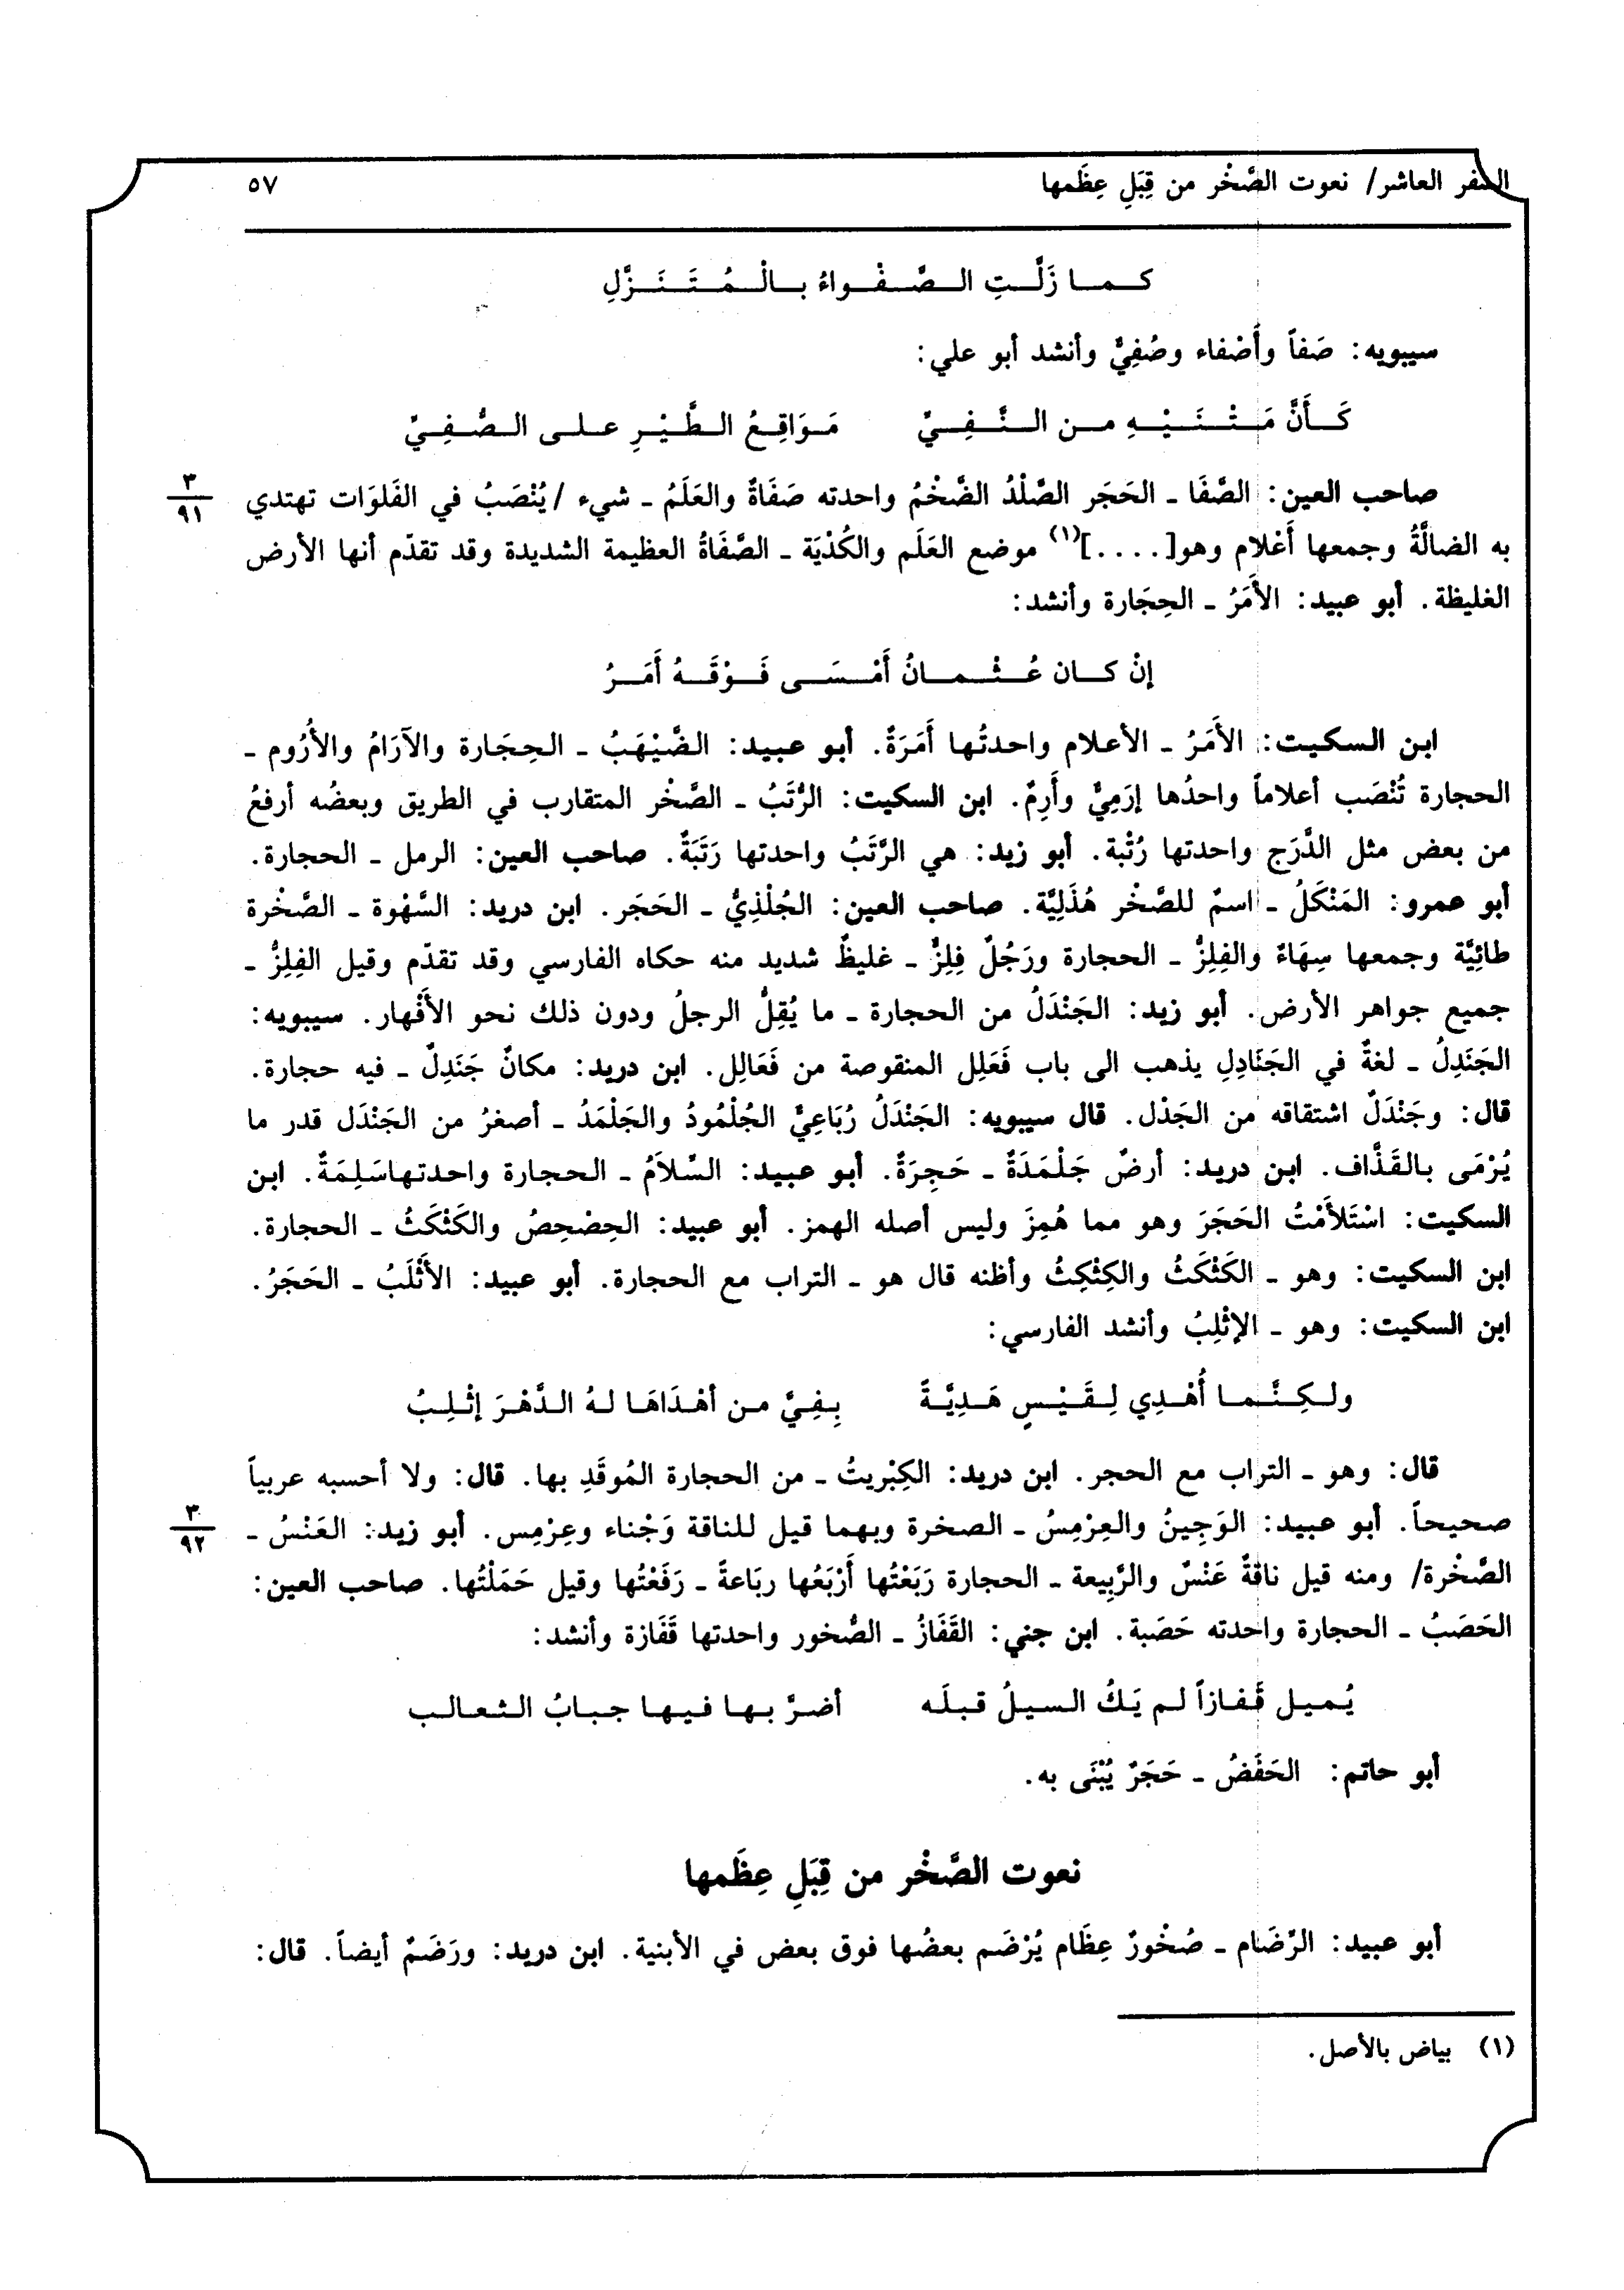 السفر العاشر/ نعوت الصَّخْر من قِبَلِ عِظَمها ٥٧
كما زَلَّتِ الصَّفْواءُ بالْمُتَنَزَّلِ
سيبويه: صَفاً وأَصْفاء وصُفِيٌّ وأنشد أبو علي:
كَأَنَّ مَتْنَيْهِ من النَّفِيِّ مَوَاقِعُ الطَّيْرِ على الصُّفِيِّ
صاحب العين: الصَّفَا ـ الحَجَر الصَّلْدُ الضَّخْمُ واحدته صَفَاةٌ والعَلَمُ ـ شيء /يُنْصَبُ في الفَلَوَات تهتدي ٣/٩١
به الضالَّةُ وجمعها أَعْلام وهو[....](١) موضع العَلَم والكُدْيَة ـ الصَّفَاةُ العظيمة الشديدة وقد تقدّم أنها الأرض
الغليظة. أبو عبيد: الأَمَرُ ـ الحِجَارة وأنشد:
إنْ كان عُثْمانُ أَمْسَى فَوْقَهُ أَمَرُ
ابن السكيت: الأَمَرُ ـ الأعلام واحدتُها أَمَرَةٌ. أبو عبيد: الضَّيْهَبُ ـ الحِجَارة والآرَامُ والأرُوم ـ
الحجارة تُنْصَب أعلاماً واحدُها إرَمِيٌّ وأَرِمٌ. ابن السكيت: الرُّتَبُ ـ الصَّخْر المتقارب في الطريق وبعضُه أرفعُ
من بعض مثل الدَّرَج واحدتها رُتْبة. أبو زيد: هي الرَّتَبُ واحدتها رَتَبَةٌ. صاحب العين: الرمل ـ الحجارة.
أبو عمرو: المَنْكَلُ ـ اسمٌ للصَّخْر هُذَلِيَّة. صاحب العين: الجُلْذِيُّ ـ الحَجَر. ابن دريد: السَّهْوة ـ الصَّخْرة
طائِيَّة وجمعها سِهَاءٌ والفِلِزُّ ـ الحجارة ورَجُلٌ فِلِزٌّ ـ غليظٌ شديد منه حكاه الفارسي وقد تقدّم وقيل الفِلِزُّ ـ
جميع جواهر الأرض. أبو زيد: الجَنْدَلُ من الحجارة ـ ما يُقِلُّ الرجلُ ودون ذلك نحو الأَفْهار. سيبويه:
الجَنَدِلُ ـ لغةٌ في الجَنَادِلِ يذهب الى باب فَعَلِل المنقوصة من فَعَالِل. ابن دريد: مكانٌ جَنَدِلٌ ـ فيه حجارة.
قال: وجَنْدَلٌ اشتقاقه من الجَدْل. قال سيبويه: الجَنْدَلُ رُبَاعِيٌّ الجُلْمُودُ والجَلْمَدُ ـ أصغرُ من الجَنْدَل قدر ما
يُرْمَى بالقَذَّاف. ابن دريد: أرضٌ جَلْمَدَةٌ ـ حَجِرَةٌ. أبو عبيد: السِّلاَمُ ـ الحجارة واحدتهاسَلِمَةٌ. ابن
السكيت: اسْتَلأَمْتُ الحَجَرَ وهو مما هُمِزَ وليس أصله الهمز. أبو عبيد: الحِصْحِصُ والكَثْكَثُ ـ الحجارة.
ابن السكيت: وهو ـ الكَثْكَثُ والكِثْكِثُ وأظنه قال هو ـ التراب مع الحجارة. أبو عبيد: الأَثْلَبُ ـ الحَجَرُ.
ابن السكيت: وهو ـ الإثْلِبُ وأنشد الفارسي:
ولكِنَّما أُهْدِي لِقَيْسٍ هَدِيَّةً بِفِيَّ من أهْدَاهَا لهُ الدَّهْرَ إثْلِبُ
قال: وهو ـ التراب مع الحجر. ابن دريد: الكِبْريتُ ـ من الحجارة المُوقَدِ بها. قال: ولا أحسبه عربياً
صحيحاً. أبو عبيد: الوَجِينُ والعِرْمِسُ ـ الصخرة وبهما قيل للناقة وَجْناء وعِرْمِس. أبو زيد: العَنْسُ ـ ٣/٩٢
الصَّخْرة/ ومنه قيل ناقةٌ عَنْسٌ والرَّبِيعة ـ الحجارة رَبَعْتُها أَرْبَعُها ربَاعةً ـ رَفَعْتُها وقيل حَمَلْتُها. صاحب العين:
الحَصَبُ ـ الحجارة واحدته حَصَبة. ابن جني: القَفَازُ ـ الصُّخور واحدتها قَفَازة وأنشد:
يُميل قَفازاً لم يَكُ السيلُ قبلَه أضرَّ بها فيها جبابُ الثعالب
أبو حاتم: الحَفَضُ ـ حَجَرٌ يُبْنَى به.
نعوت الصَّخْر من قِبَلِ عِظَمها
أبو عبيد: الرِّضَام ـ صُخْورٌ عِظَام يُرْضَم بعضُها فوق بعض في الأبنية. ابن دريد: ورَضَمٌ أيضاً. قال:
(١) بياض بالأصل.